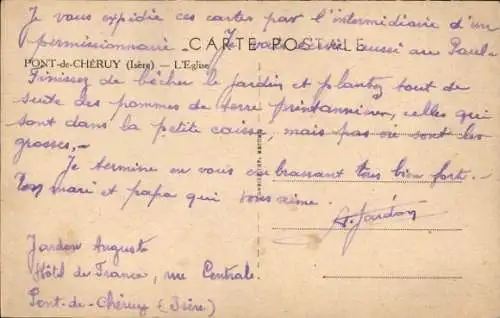 Je vous expédie ces cartes par l'intermédiaire d'un
permissionnaire. Je vais écrire aussi au Paul.
CARTE POSTALE
PONT-de-CHÉRUY (Isère) — L'Église
Finissez de bêcher le jardin et plantez tout de
suite des pommes de terre printannières, celles qui
sont dans la petite caisse, mais pas où sont les
grosses,-
Je termine en vous embrassant tous bien fort.-
Ton mari et papa qui vous aime.
A. Jardon
Jardon Auguste
Hôtel de France, rue Centrale.
Pont-de-Chéruy (Isère)